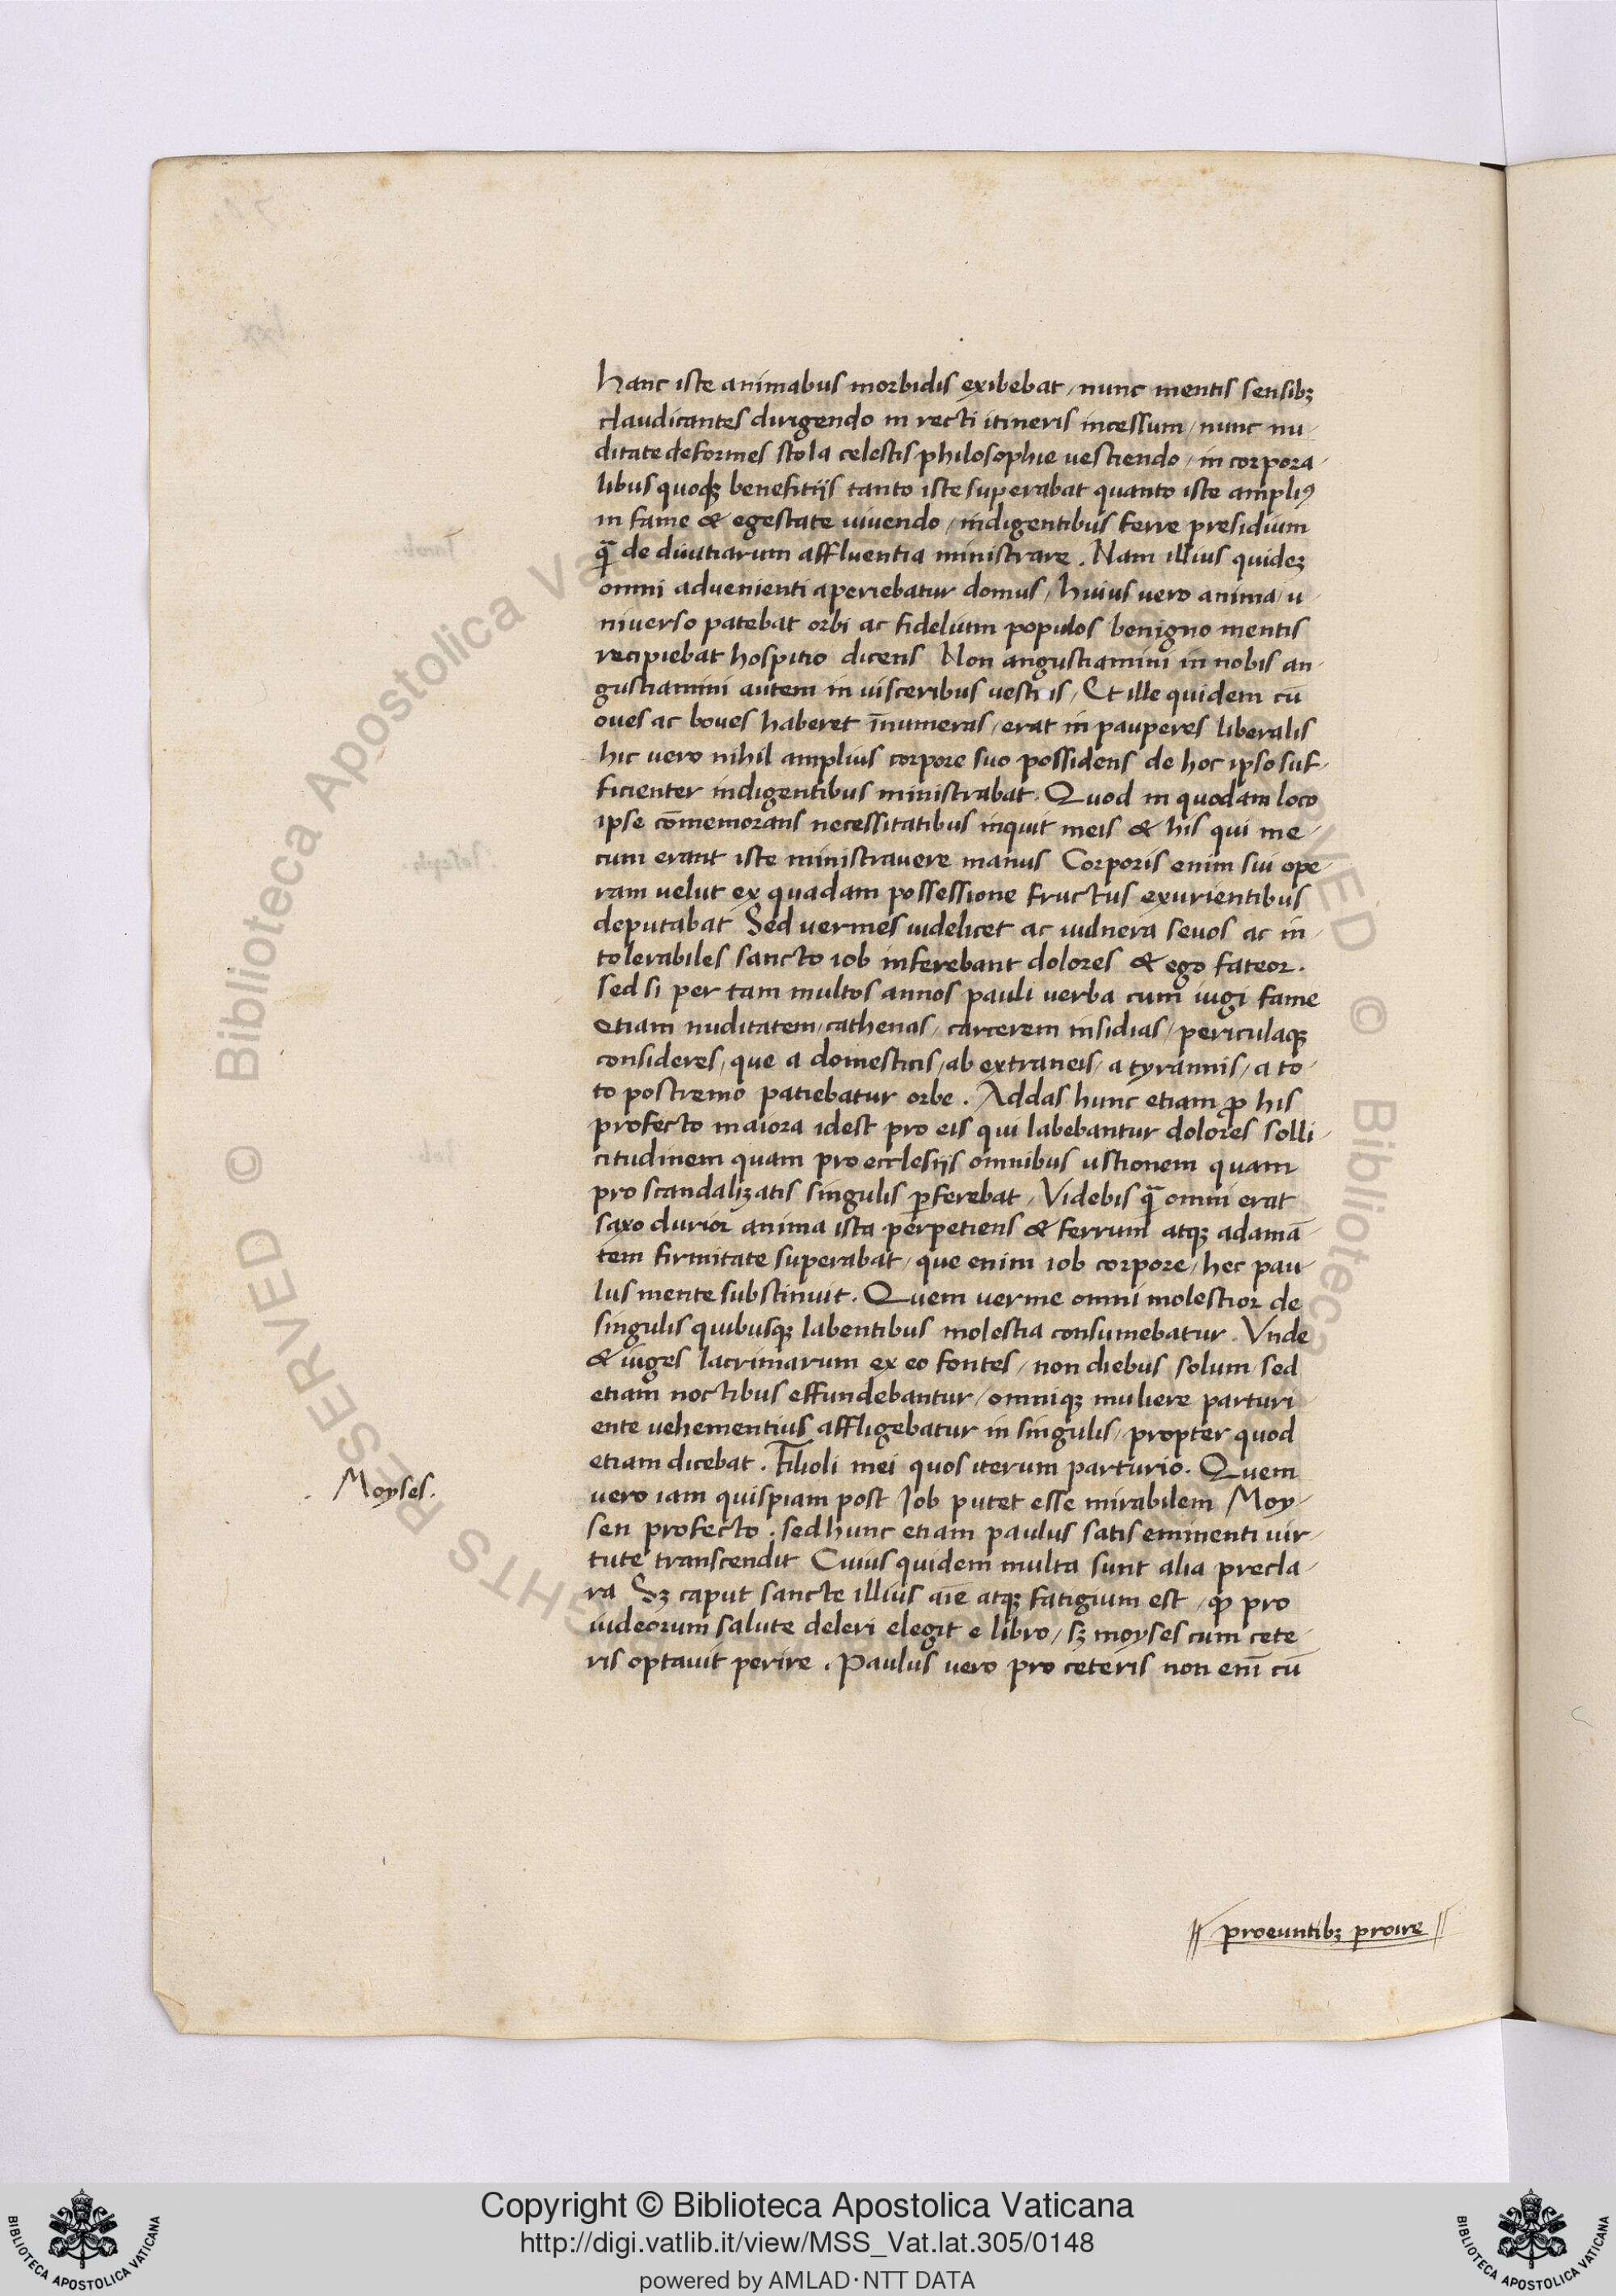 hanc iste animabus morbidis exibebat / nunc mentis sensibꝫ
claudicantes dirigendo in recti itineris incessum / nunc nu-
ditate deformes stola celestis philosophie uestiendo / in corpora-
libus quoqꝫ benefitijs tanto iste superabat quanto iste ampliꝰ
in fame & egestate uiuendo / indigentibus ferre presidium
qͣ̄ de diuitiarum affluentia ministrare . Nam illius quideꝫ
omni advenienti aperiebatur domus / huius uero anima u-
niuerso patebat orbi ac fidelium populos benigno mentis
recipiebat hospitio dicens Non angustiamini in nobis an-
gustiamini autem in uisceribus vest is / Et ille quidem cū
oues ac boues haberet īnumeras / erat in pauperes liberalis
hic uero nihil amplius corpore suo possidens de hoc ipso suf-
ficienter indigentibus ministrabat . Quod in quodam loco
ipse cōmemorans necessitatibus inquit meis & his qui me-
cum erant iste ministravere manus Corporis enim sui ope-
ram uelut ex quadam possessione fructus exurientibus
deputabat Sed uermes uidelicet ac uulnera seuos ac in-
tolerabiles sancto iob inferebant dolores & ego fateor .
sed si per tam multos annos pauli uerba cum iugi fame
etiam nuditatem / cathenas / carcerem insidias / periculaqꝫ
consideres / que a domesticis / ab extraneis / a tyrannis / a to-
to postremo patiebatur orbe . Addas hunc etiam ꝓ his
profecto maiora idest pro eis qui labebantur dolores solli-
citudinem quam pro ecclesijs omnibus ustionem quam
pro scandalizatis singulis ꝑferebat / Videbis qͣ̄ omni erat
saxo durior anima ista perpetiens & ferrum atqꝫ adamā-
tem firmitate superabat / que enim iob corpore / hec pau-
lus mente substinuit . Quem uerme omni molestior de
singulis quibusqꝫ labentibus molestia consumebatur . Vnde
& iuges lacrimarum ex eo fontes / non diebus solum sed
etiam noctibus effundebantur / omniqꝫ muliere parturi-
ente vehementius affligebatur in singulis / propter quod
etiam dicebat . Filioli mei quos iterum parturio . Quem
Moyses.
uero iam quispiam post Job putet esse mirabilem Moy-
sen profecto . sed hunc etiam paulus satis eminenti uir-
tute transcendit Cuius quidem multa sunt alia precla-
ra Sꝫ caput sancte illius aīe atqꝫ fatigium est / ꝙ pro
iudeorum salute deleri elegit e libro / sꝫ moyses cum cete-
ris optauit perire . Paulus uero pro ceteris non enī cū
proeuntibꝫ proire
© Biblioteca Apostolica Va
RESERVED
GHTS
RVED © Biblioteca
Copyright © Biblioteca Apostolica Vaticana
http://digi.vatlib.it/view/MSS_Vat.lat.305/0148
powered by AMLAD·NTT DATA
BIBLIOTECA APOSTOLICA VATICANA
BIBLIOTECA APOSTOLICA VATICANA